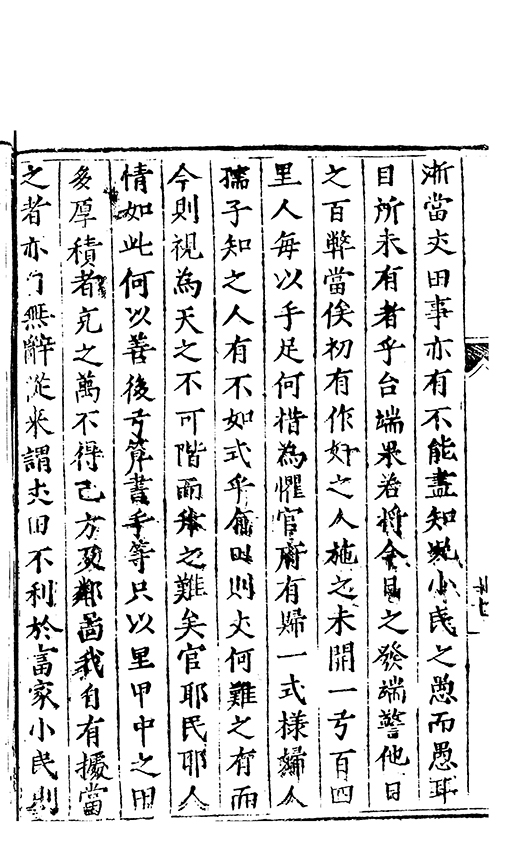 漸當丈田事亦有不能盡知况小民之愚而愚耳
目所未有者乎台端果若將今日之發端警他日
之百弊當俟初有作奸之人施之未開一弓百四
里人每以手足何措為懼官府有歸一式樣婦人
孺子知之人有不如式乎有田則丈何難之有而
今則視為天之不可階而稱之難矣官耶民耶人
情如此何以善後弓算書手等只以里甲中之田
多厚積者充之萬不得已方及鄰啚我自有擾當
之者亦自無辭從來謂丈田不利於富家小民則